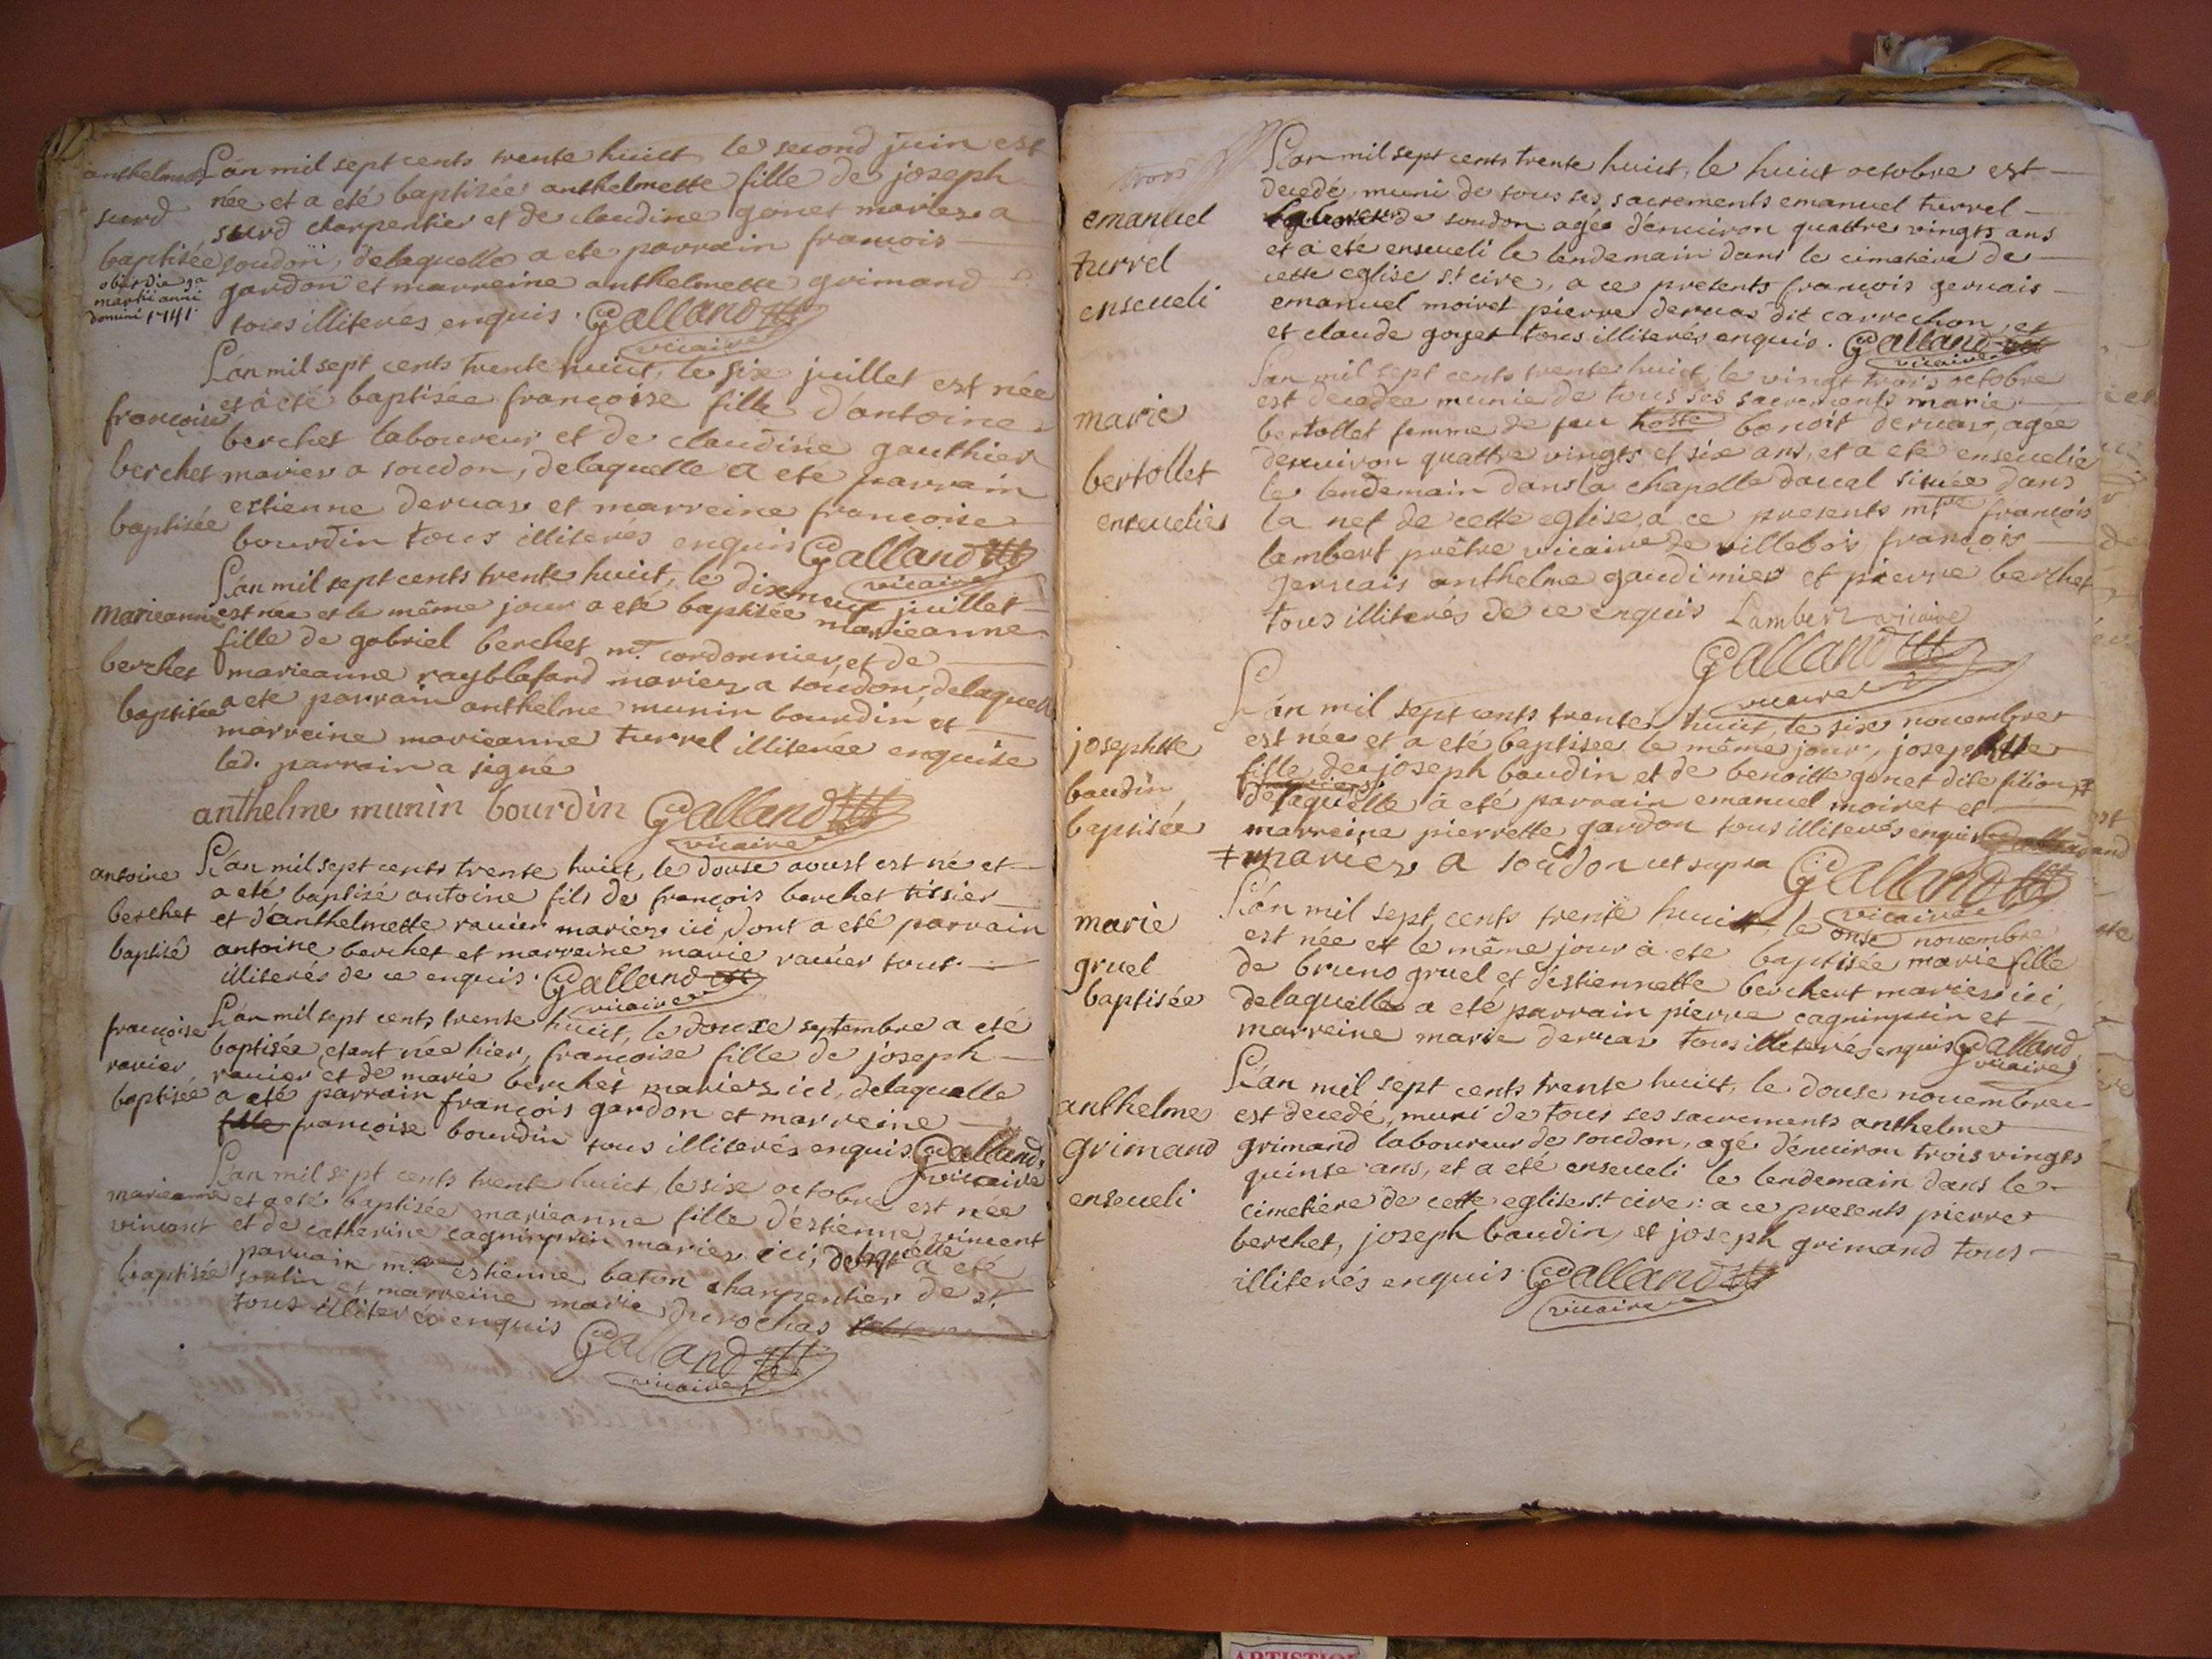 anthelmette
surd
baptisée
obiit die 9a
martii anni
domini 1741
L'an mil sept cents trente huict, le second juin est
née et a eté baptisée anthelmette fille de joseph
surd charpentier et de claudine gonet mariez a
soudon, delaquelle a ete parrain françois
gardon et marreine anthelmette grimand
tous illiterés enquis. Galland
vicaire
françoise
berchet
baptisée
L'an mil sept cents trente huict, le six juillet est née
et a eté baptisée françoise fille d'antoine
berchet laboureur et de claudine gauthier
mariez a soudon, delaquelle a eté parrain
estienne dervas et marreine françoise
bourdin tous illiterés enquis Galland
vicaire
marieanne
berchet
baptisée
L'an mil sept cents trente huict, le dixneuf juillet
est née et le même jour a eté baptisée marieanne
fille de gabriel berchet mr. cordonnier, et de
marieanne rayblafard mariez a soudon, delaquelle
a ete parrain anthelme munin bourdin et
marreine marieanne turrel illiterée enquise
led. parrain a signé
anthelme munin bourdin Galland
vicaire
antoine
berchet
baptisé
L'an mil sept cents trente huict, le douse aoust est né et
a eté baptisé antoine fils de françois berchet tissier
et d'anthelmette ravier mariez ici, dont a eté parrain
antoine berchet et marreine marie ravier tous
illiterés de ce enquis. Galland
vicaire
françoise
ravier
baptisée
L'an mil sept cents trente huict, le douze septembre a eté
baptisée, etant née hier, françoise fille de joseph
ravier et de marie berchet mariez ici, delaquelle
a eté parrain françois gardon et marreine
fille françoise bourdin tous illiterés enquis. Galland
vicaire
marieanne
vincent
baptisée
L'an mil sept cents trente huict, le six octobre est née
et a eté baptisée marieanne fille d'estienne vincent
et de catherine cagninprin mariez ici, delaquelle a eté
parrain m.re estienne baton charpentier de st.
sorlin et marreine marie durochas
tous illiterés enquis Galland
vicaire
emanuel
turrel
enseveli
L'an mil sept cents trente huict, le huict octobre est
decedé, muni de tous ses sacrements emanuel turrel
laboureur de soudon agée d'environ quattre vingts ans
et a eté enseveli le lendemain dans le cimetière de
cette eglise st. cire, a ce presents françois gervais
emanuel moiret pierre dervas dit carrechon, et
et claude goyet tous illiterés enquis. Galland
vicaire
marie
bertollet
ensevelie
L'an mil sept cents trente huict, le vingt trois octobre
est decedée munie de tous ses sacrements marie
bertollet femme de feu benoit dervas, agée
denviron quattre vingts et six ans, et a eté ensevelie
le lendemain dans la chapelle daval située dans
la nef de cette eglise, a ce presents m.re françois
lambert prêtre vicaire de villebois françois
gervais anthelme gaudimier et pierre berchet
tous illiterés de ce enquis Lambert vicaire
Galland
vicaire
josephtte
baudin
baptisée
L'an mil sept cents trente huict, le six novembre
est née et a eté baptisée le même jour, josephtte
fille de joseph baudin et de benoitte gonet dite filion ‡
delaquelle a eté parrain emanuel moiret et
marreine pierrette gardon tous illiterés enquis Galland
‡ mariez a soudon ut supra Galland
vicaire
marie
gruel
baptisée
L'an mil sept cents trente huict, le onse novembre
est née et le même jour a ete baptisée marie fille
de bruno gruel et d'estiennette berchert mariez ici,
delaquelle a eté parrain pierre cagninprin et
marreine marie dervas tous illiterés enquis Galland
vicaire
anthelme
grimand
enseveli
L'an mil sept cents trente huict, le douse novembre
est decedé, muni de tous ses sacrements anthelme
grimand laboureur de soudon, agé d'environ trois vingts
quinse ans, et a eté enseveli le lendemain dans le
cimetière de cette eglise st. cire: a ce presents pierre
berchet, joseph baudin, et joseph grimand tous
illiterés enquis. Galland
vicaire